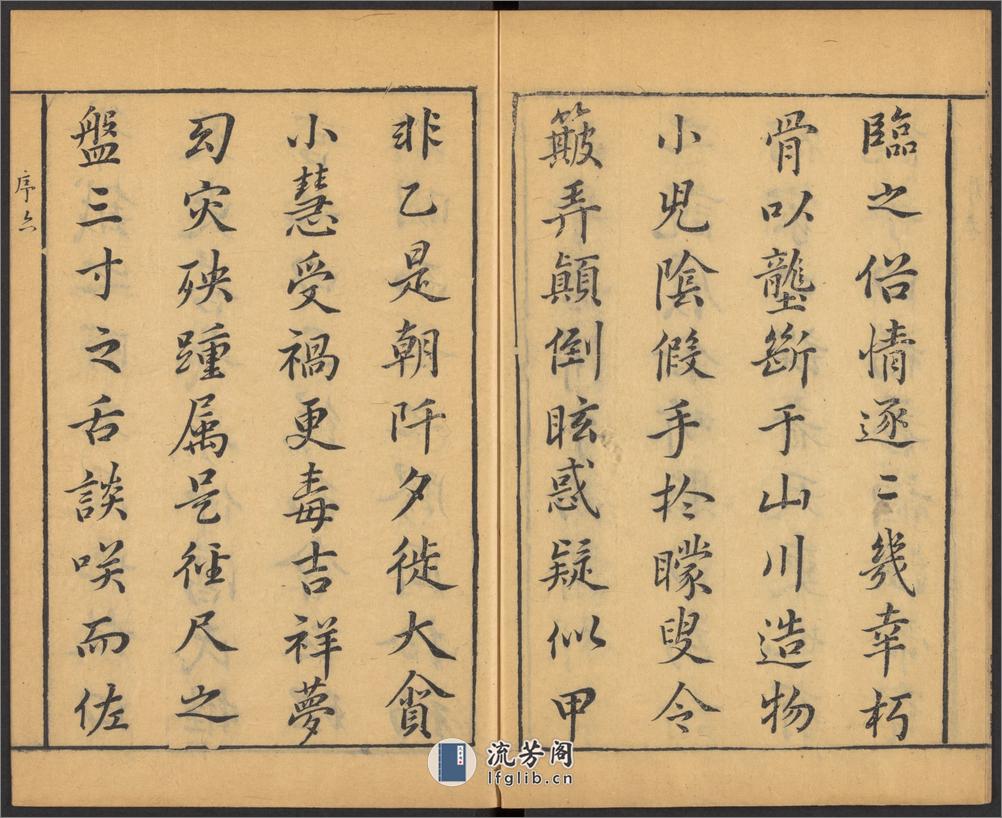 臨之俗情逐〻幾幸朽
骨以壟斷于山川造物
小兒陰假手於矇叟令
簸弄顛倒眩惑疑似甲
非乙是朝阡夕徙大貪
小慧受禍更毒吉祥夢
幻灾殃踵属是徑尺之
盤三寸之舌談咲而佐
序六
流芳阁
lfglib.cn